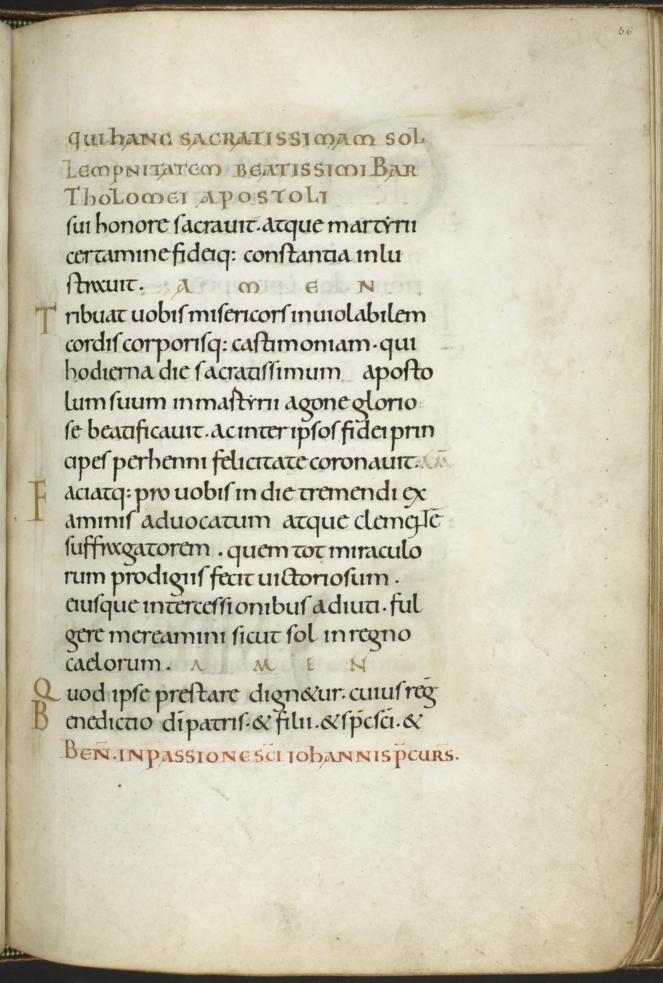 56
qui hanc sacratissimam sol
Lempnitatem beatissimi Bar
Tholomei apostoli
sui honore sacrauit. atque martyrii
certamine fideiq: constantia inlu
straxuit. A M E N
Tribuat uobis misericors inuiolabilem
cordis corporisq: castimoniam. qui
hodierna die sacratissimum aposto
lum suum in martyrii agone glorio
se beatificauit. ac inter ipsos fidei prin
cipes perhenni felicitate coronauit. AM̅
Faciatq: pro uobis in die tremendi ex
aminis aduocatum atque
suffragatorem. quem tot miraculo
rum prodigiis fecit uictoriosum.
eiusque intercessionibus adiuti. ful
gere mereamini sicut sol in regno
caelorum. A M E N
Quod ipse prestare dign&ur. cuius reg̅
Benedictio di̅ patris. & filii. & sp̅c sc̅i. &
Ben̅. in passione sc̅i iohannis p̅curs.